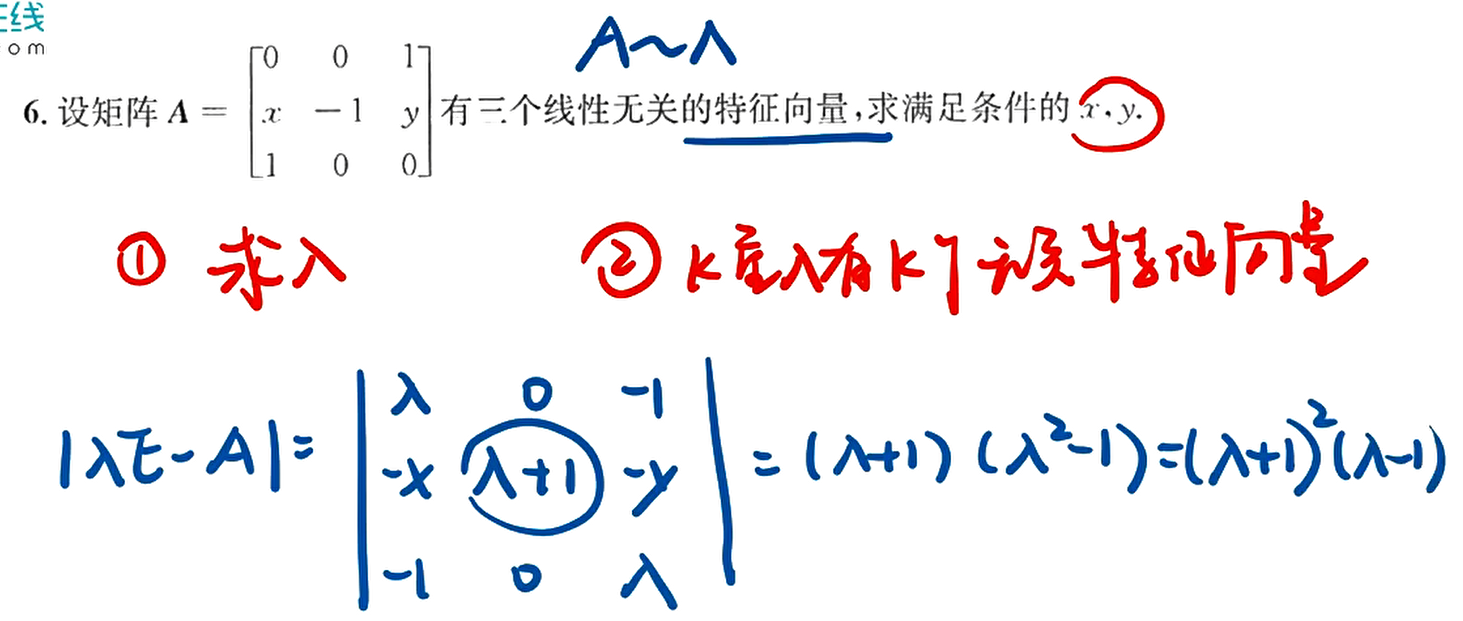 在线
om
A~Λ
6. 设矩阵 A = [0 0 1; x -1 y; 1 0 0] 有三个线性无关的特征向量,求满足条件的 x,y.
① 求λ ② K重λ有K个无关特征向量
|λE-A| = |λ 0 -1; -x λ+1 -y; -1 0 λ| = (λ+1)(λ²-1)=(λ+1)²(λ-1)